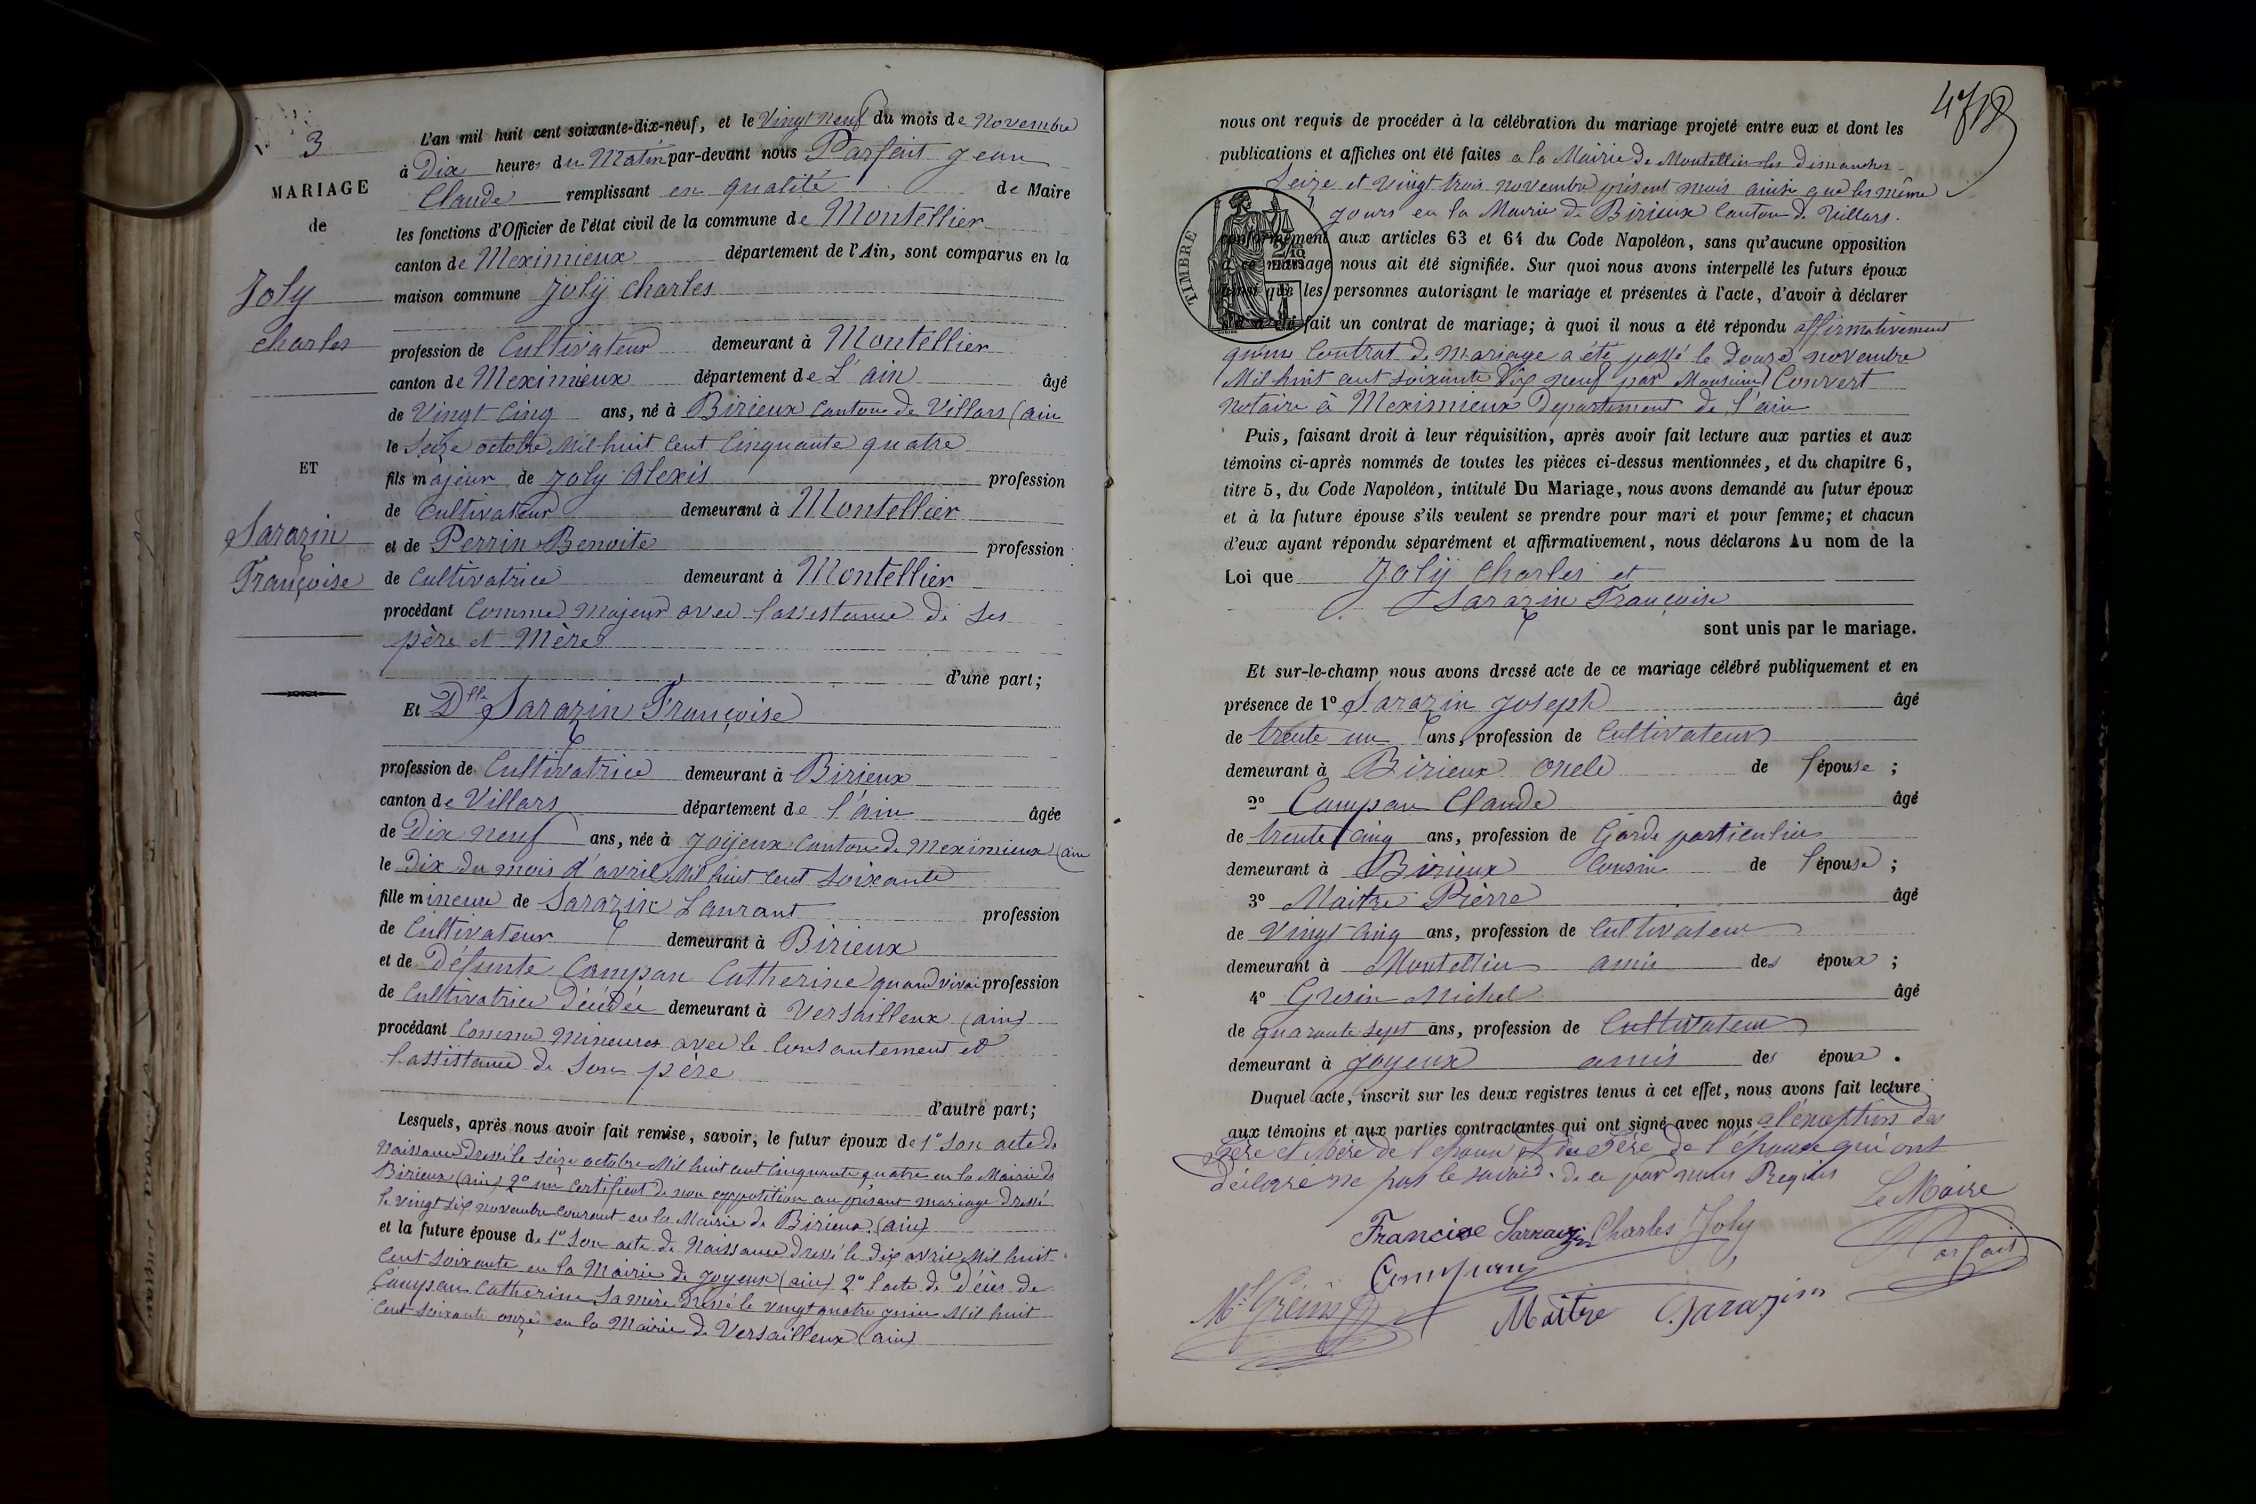 3
MARIAGE
de
Joly
charles
ET
Sarazin
Françoise
L'an mil huit cent soixante-dix-neuf, et le Vingt neuf du mois de Novembre
à Dix heures du Matin par-devant nous Parfait Jean
Claude remplissant en qualité de Maire
les fonctions d'Officier de l'état civil de la commune de Montellier
canton de Meximieux département de l'Ain, sont comparus en la
maison commune Joly Charles
profession de Cultivateur demeurant à Montellier
canton de Meximieux département de L'ain âgé
de Vingt Cinq ans, né à Birieux Canton de Villars (ain
le Seize octobre Mil huit Cent Cinquante quatre
fils majeur de Joly Alexis profession
de Cultivateur demeurant à Montellier
et de Perrin Benoite profession
de Cultivatrice demeurant à Montellier
procédant Comme Majeur avec l'assistance de ses
père et Mère
d'une part;
Et Dlle Sarazin Françoise
profession de Cultivatrice demeurant à Birieux
canton de Villars département de l'ain âgée
de Dix neuf ans, née à Joyeux Canton de Meximieux (ain
le Dix du mois d'avril Mil huit Cent Soixante
fille mineure de Sarazin Laurant profession
de Cultivateur demeurant à Birieux
et de Défunte Campan Catherine quand vivai profession
de Cultivatrice Décédée demeurant à Versailleux (ain)
procédant Comme Mineure avec le Consantement et
l'assistance de Son père
d'autre part;
Lesquels, après nous avoir fait remise, savoir, le futur époux de 1° Son acte de
Naissance Dressé le Seize octobre Mil huit cent Cinquante quatre en la Mairie de
Birieux (ain) 2° un Certificat de non opposition au présant mariage Dressé
le vingt Six novembre Courant en la Mairie de Birieux (ain)
et la future épouse de 1° Son acte de Naissance Dressé le dix avril Mil huit
Cent Soixante en la Mairie de Joyeux (ain) 2° l'acte de Décès de
Campan Catherine Sa mère Dressé le vingt quatre juin Mil huit
Cent Soixante onze en la Mairie de Versailleux (ain)
nous ont requis de procéder à la célébration du mariage projeté entre eux et dont les
publications et affiches ont été faites a la Mairie de Montellier les dimanches
Seize et vingt trois novembre présent mois ainsi que les même
jours en la Mairie de Birieux Canton de Villars.
TIMBRE
conformément aux articles 63 et 64 du Code Napoléon, sans qu'aucune opposition
à ce mariage nous ait été signifiée. Sur quoi nous avons interpellé les futurs époux
ainsi que les personnes autorisant le mariage et présentes à l'acte, d'avoir à déclarer
s'il a été fait un contrat de mariage; à quoi il nous a été répondu affirmativement
qu'un Contrat de Mariage a été passé le Douze novembre
Mil huit cent Soixante Dix neuf par Monsieur Convert
Notaire à Meximieux Département de l'ain
Puis, faisant droit à leur réquisition, après avoir fait lecture aux parties et aux
témoins ci-après nommés de toutes les pièces ci-dessus mentionnées, et du chapitre 6,
titre 5, du Code Napoléon, intitulé Du Mariage, nous avons demandé au futur époux
et à la future épouse s'ils veulent se prendre pour mari et pour femme; et chacun
d'eux ayant répondu séparément et affirmativement, nous déclarons Au nom de la
Loi que Joly Charles et
Sarazin Françoise
sont unis par le mariage.
Et sur-le-champ nous avons dressé acte de ce mariage célébré publiquement et en
présence de 1° Sarazin Joseph âgé
de trente un ans, profession de Cultivateur
demeurant à Birieux Oncle de l'épouse ;
2° Campan Claude âgé
de trente cinq ans, profession de Garde particulier
demeurant à Birieux Cousin de l'épouse ;
3° Maitre Pierre âgé
de Vingt cinq ans, profession de Cultivateur
demeurant à Montellier amis des époux ;
4° Gresin Michel âgé
de quarante Sept ans, profession de Cultivateur
demeurant à Joyeux amis des époux .
Duquel acte, inscrit sur les deux registres tenus à cet effet, nous avons fait lecture
aux témoins et aux parties contractantes qui ont signé avec nous a l'exeption des
Père et Mère de l'epoux et du Père de l'épouse qui ont
Déclaré ne pas le savoir de ce par nous Requis
Le Maire
Francise Sarrazin Charles Joly Parfait
Campan
Maitre Sarazin